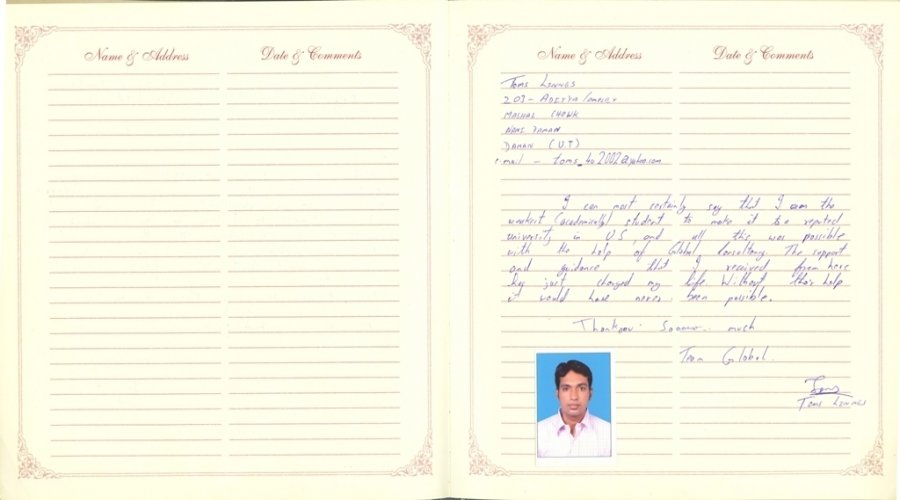 Name & Address
Date & Comments
Name & Address
Date & Comments
Toms
203 - Aditya
Mashal Chowk
Nani Daman
Daman (U.T)
e-mail - toms_4u2002@yahoo.com
I can most certainly say that I am the
weakest (academically) student to make it to a reputed
university in US, and all this was possible
with the help of Global Consultancy. The support
and guidance that I received from here
has just changed my life. Without their help
it would have never been possible.
Thankyou much
Team Global.
Toms